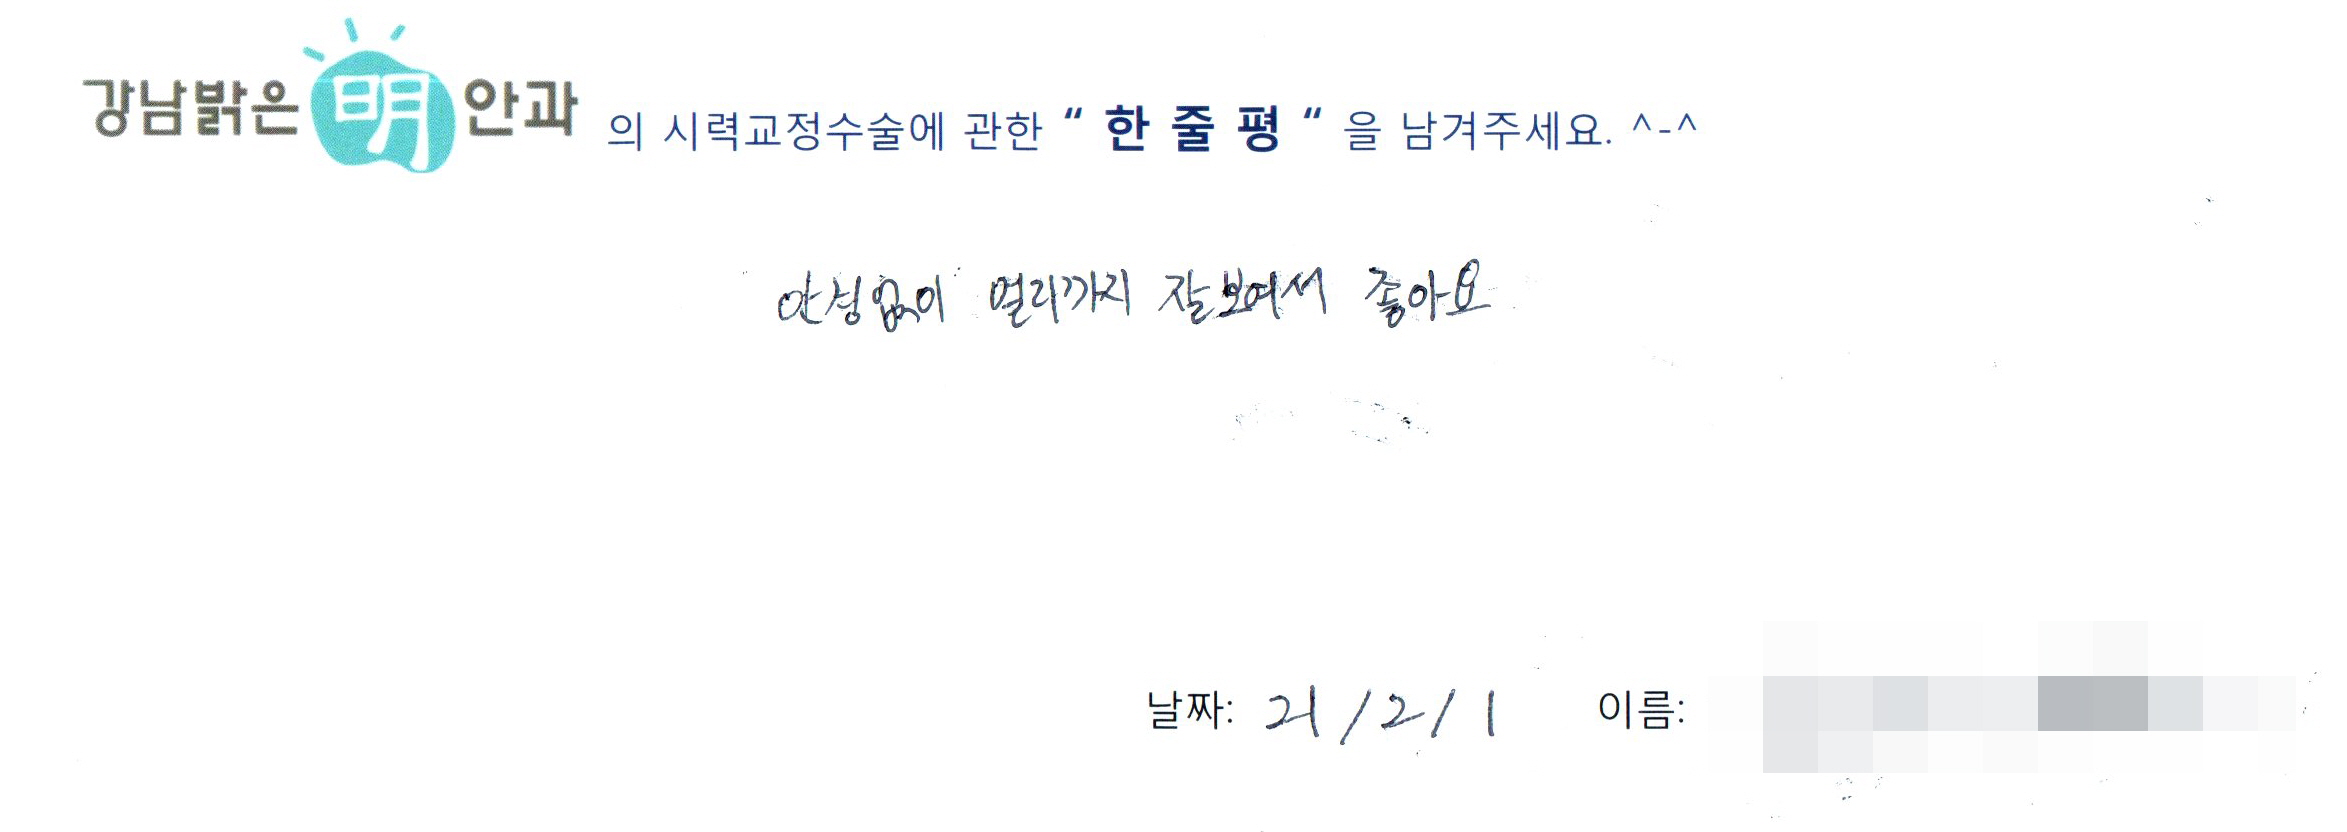 강남밝은 明 안과 의 시력교정수술에 관한 “ 한 줄 평 “ 을 남겨주세요. ^-^
안경없이 멀리까지 잘보여서 좋아요
날짜: 21/2/1 이름: